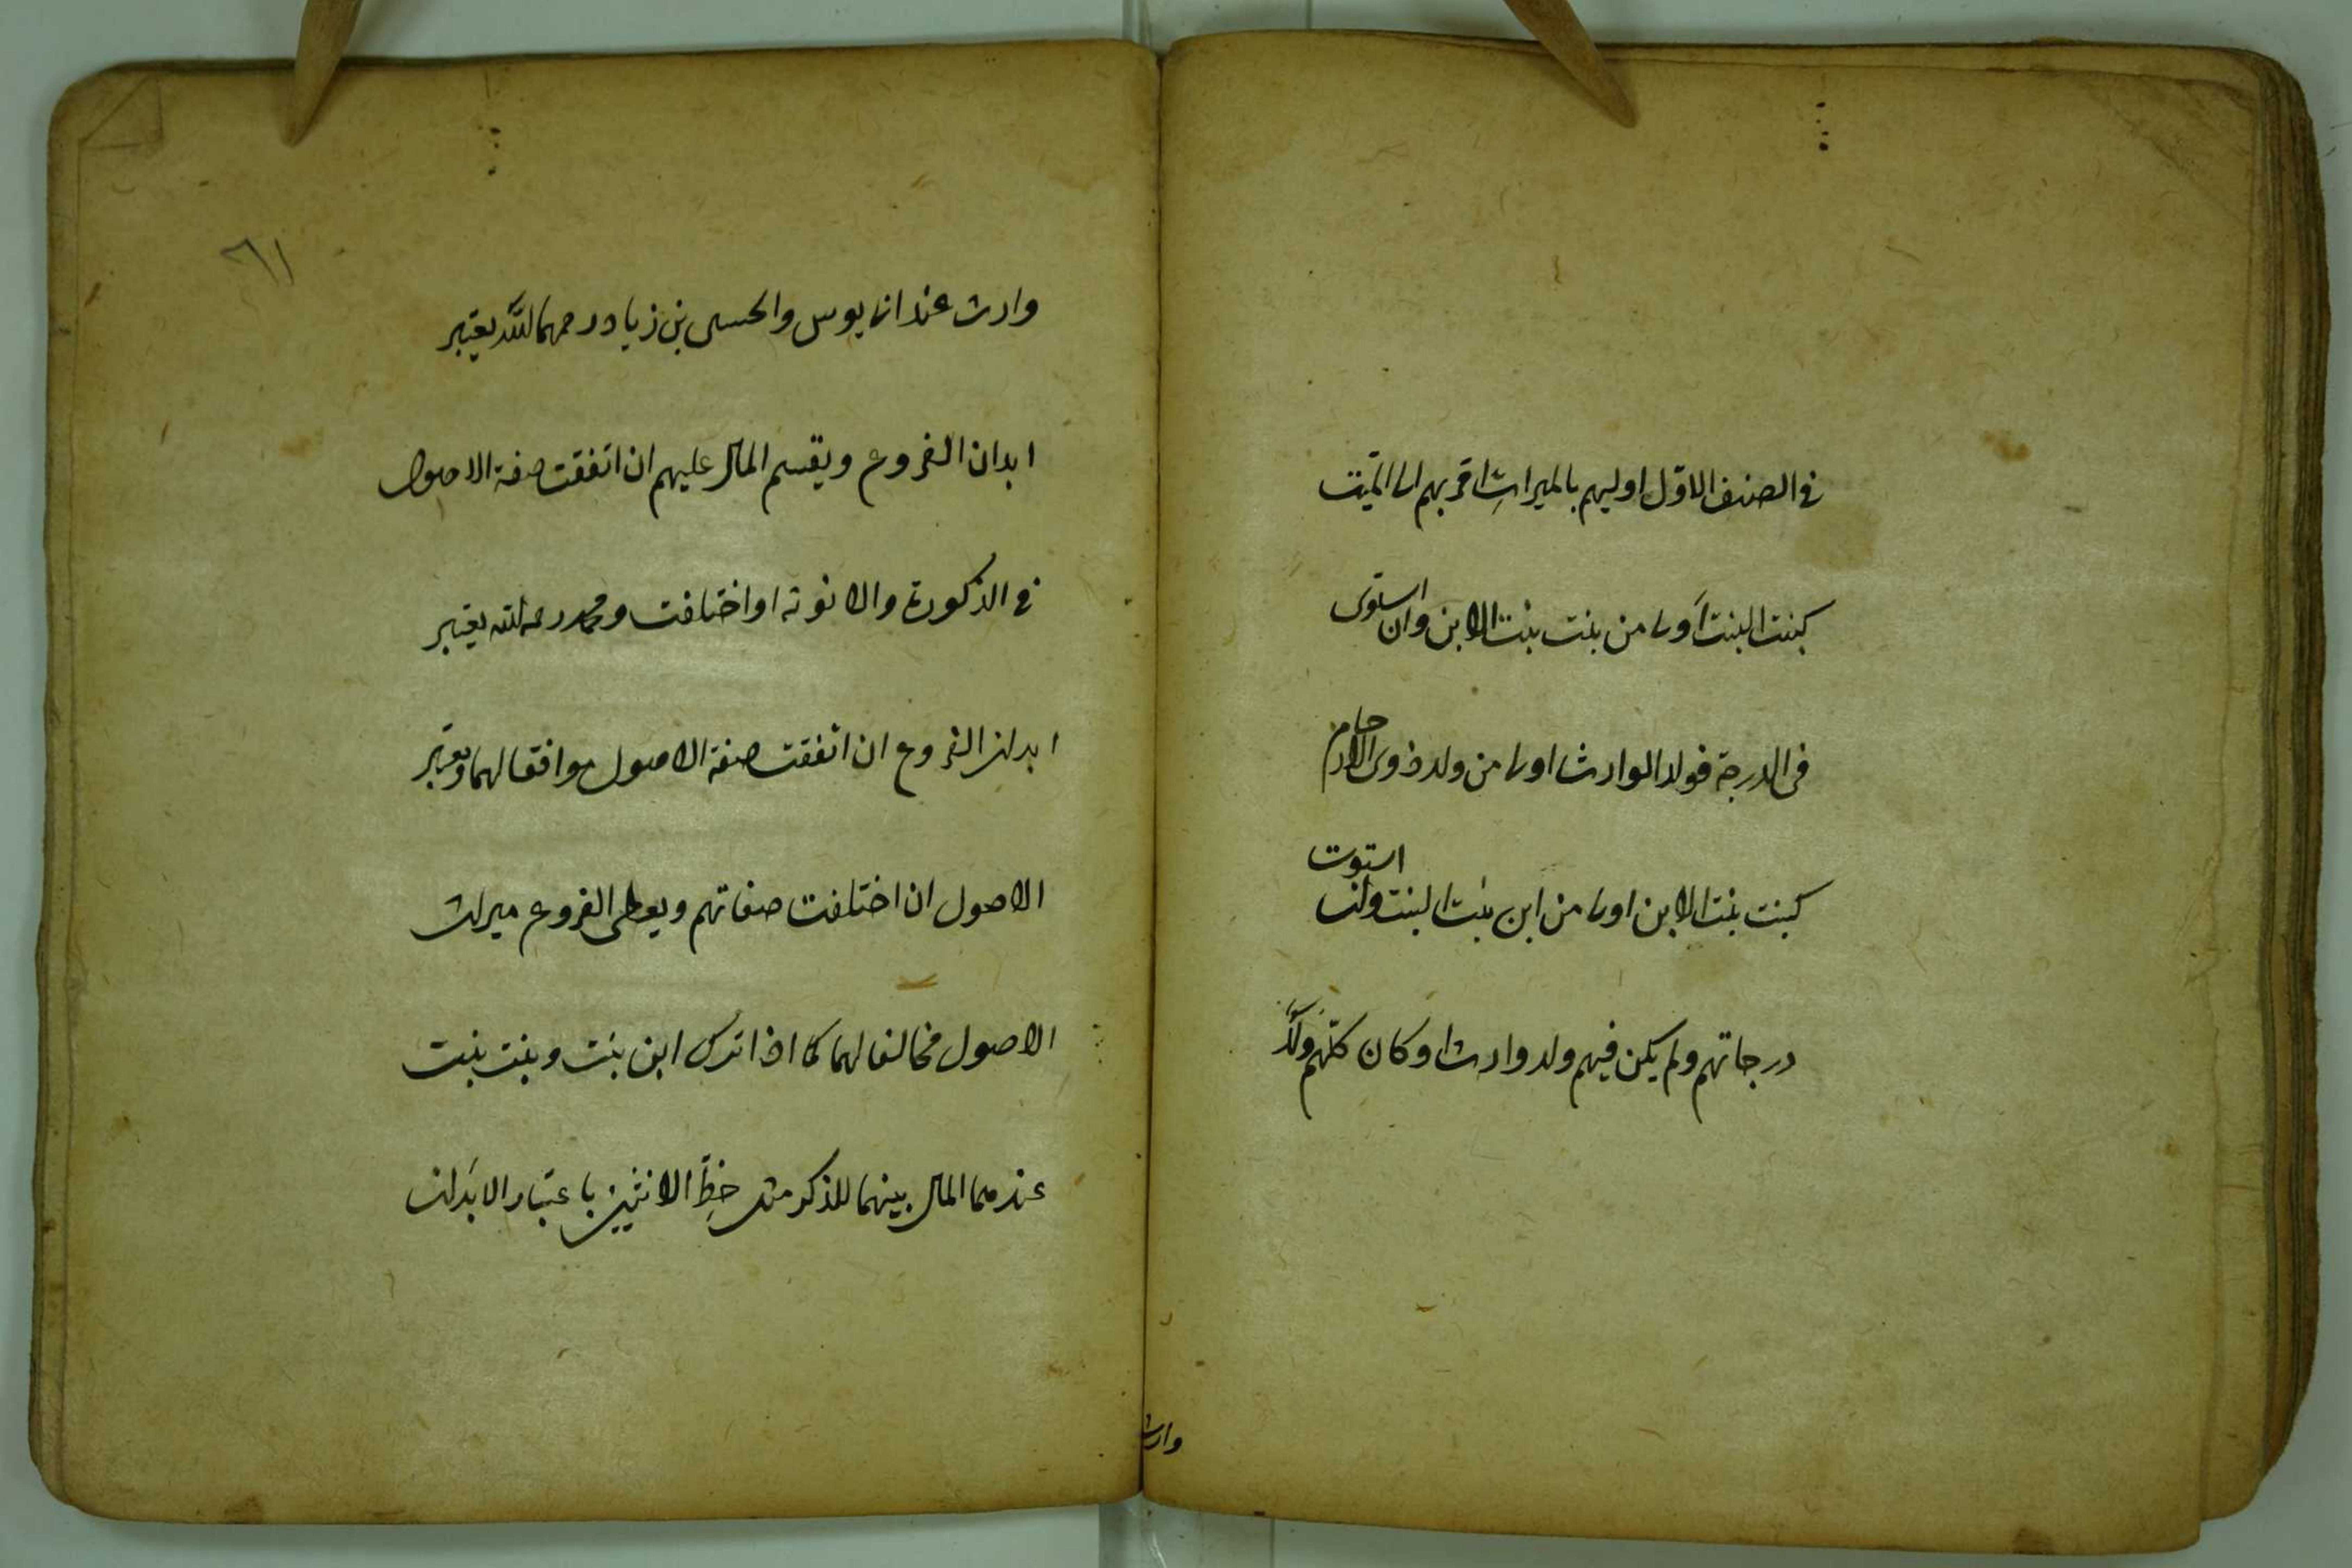 في الصنف الاوّل اوليهم بالميراث اقربهم الى الميّت
كبنت البنت اَولى من بنت بنت الابن وان استوى
فى الدرجة فولد الوارث اولى من ولد ذوى الارحام
كبنت بنت الابن اولى من ابن بنت البنت وان استوت
درجاتهم ولم يكن فيهم ولد وارث او كان كلّهم ولدَ
وارث
٦١
وارث عند ابى يوسف والحسن بن زياد رحمهما الله يعتبر
ابدان الفروع ويقسم المال عليهم ان اتفقت صفة الاصول
في الذكورة والانوثة او اختلفت ومحمد رحمه الله يعتبر
ابدان الفروع ان اتفقت صفة الاصول موافقا لهما ويعتبر
الاصول ان اختلفت صفاتهم ويعطى الفروع ميراث
الاصول مخالفا لهما كما اذا ترك ابن بنت وبنت بنت
عندهما المال بينهما للذكر مثل حظِّ الانثيين باعتبار الابَدان